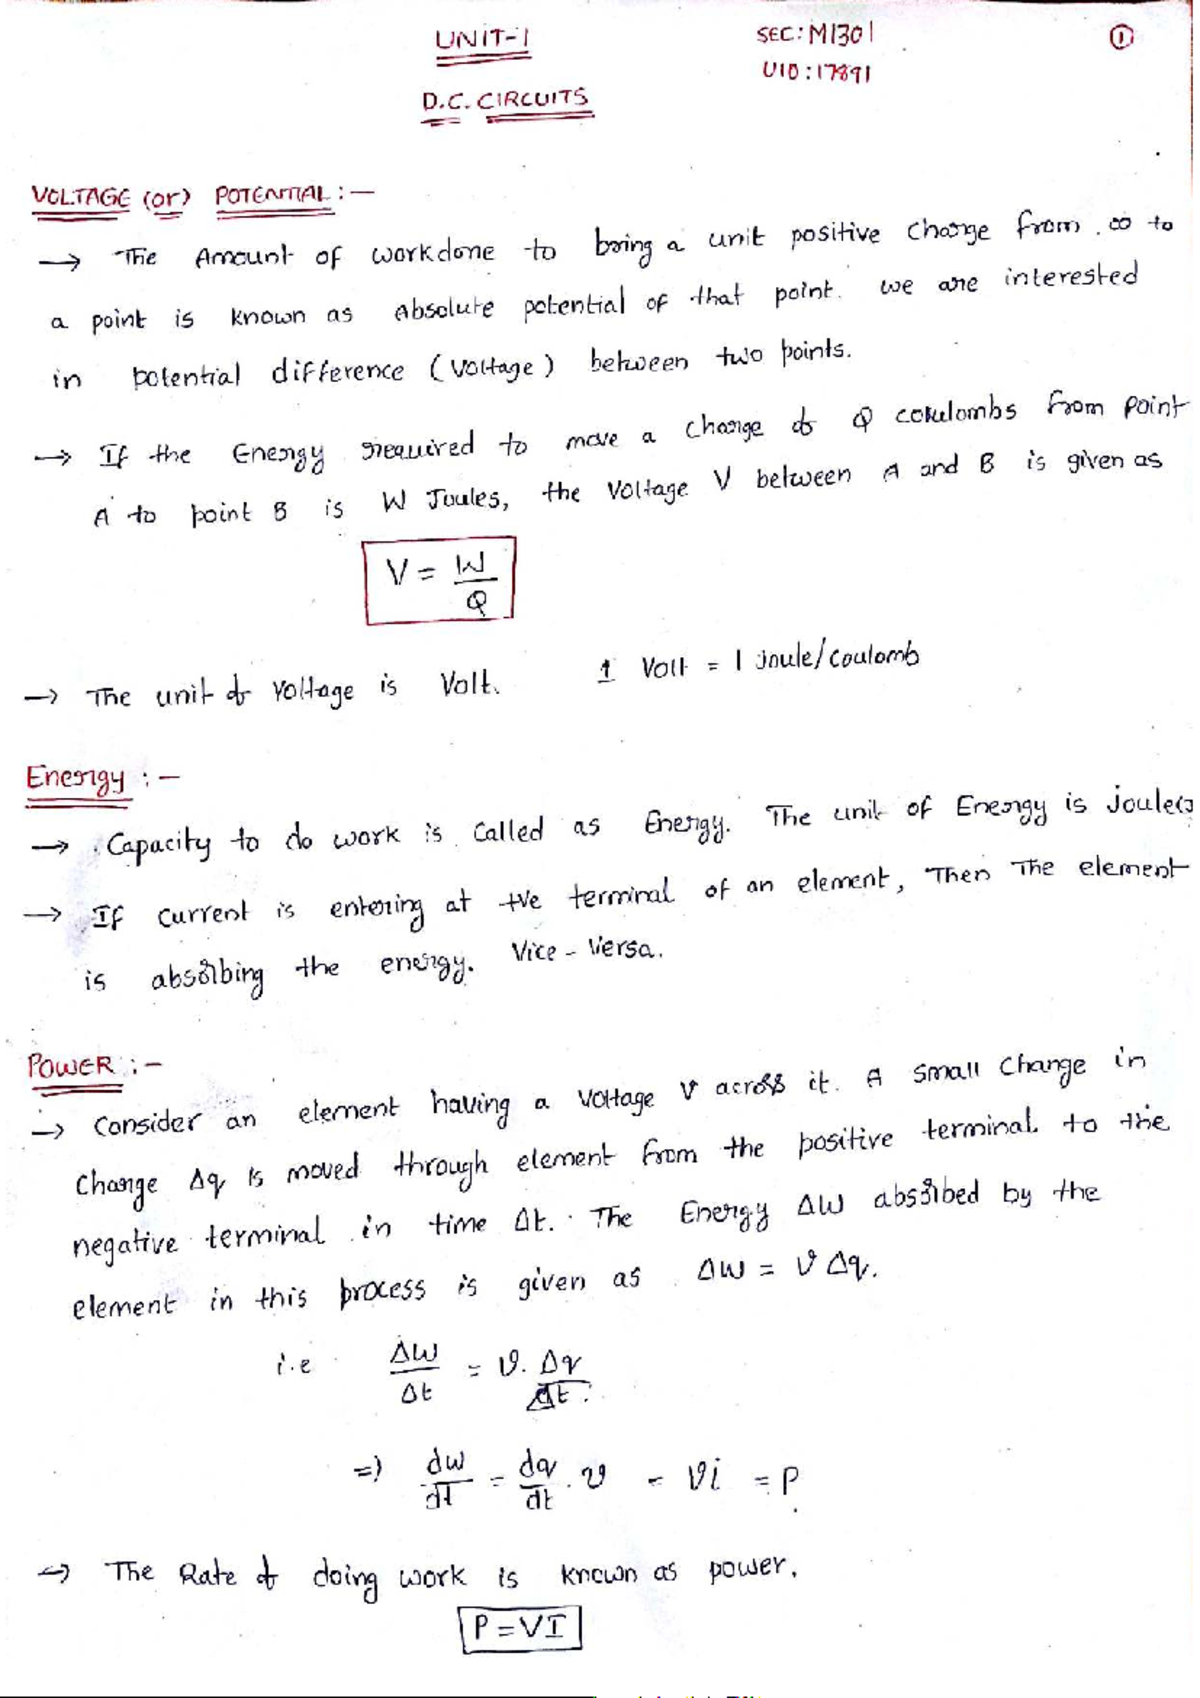 UNIT-1
SEC: M1301
①
UID: 17891
D.C. CIRCUITS
VOLTAGE (or) POTENTIAL :-
→ The Amount of workdone to bring a unit positive charge from ∞ to
a point is known as Absolute potential of that point. we are interested
in potential difference (voltage) between two points.
→ If the Energy required to move a charge of Q coulombs from point
A to point B is W Joules, the voltage V between A and B is given as
V = W/Q
→ The unit of voltage is Volt. 1 Volt = 1 joule/coulomb
Energy :-
→ Capacity to do work is called as Energy. The unit of Energy is joules
→ If current is entering at +ve terminal of an element, Then The element
is absorbing the energy. Vice-Versa.
POWER :-
→ Consider an element having a voltage v across it. A small change in
charge Δq is moved through element from the positive terminal to the
negative terminal in time Δt. The Energy ΔW absorbed by the
element in this process is given as ΔW = v Δq.
i.e ΔW/Δt = v. Δq/Δt.
=) dw/dt = dq/dt . v = vi = P
→ The Rate of doing work is known as power.
P = VI